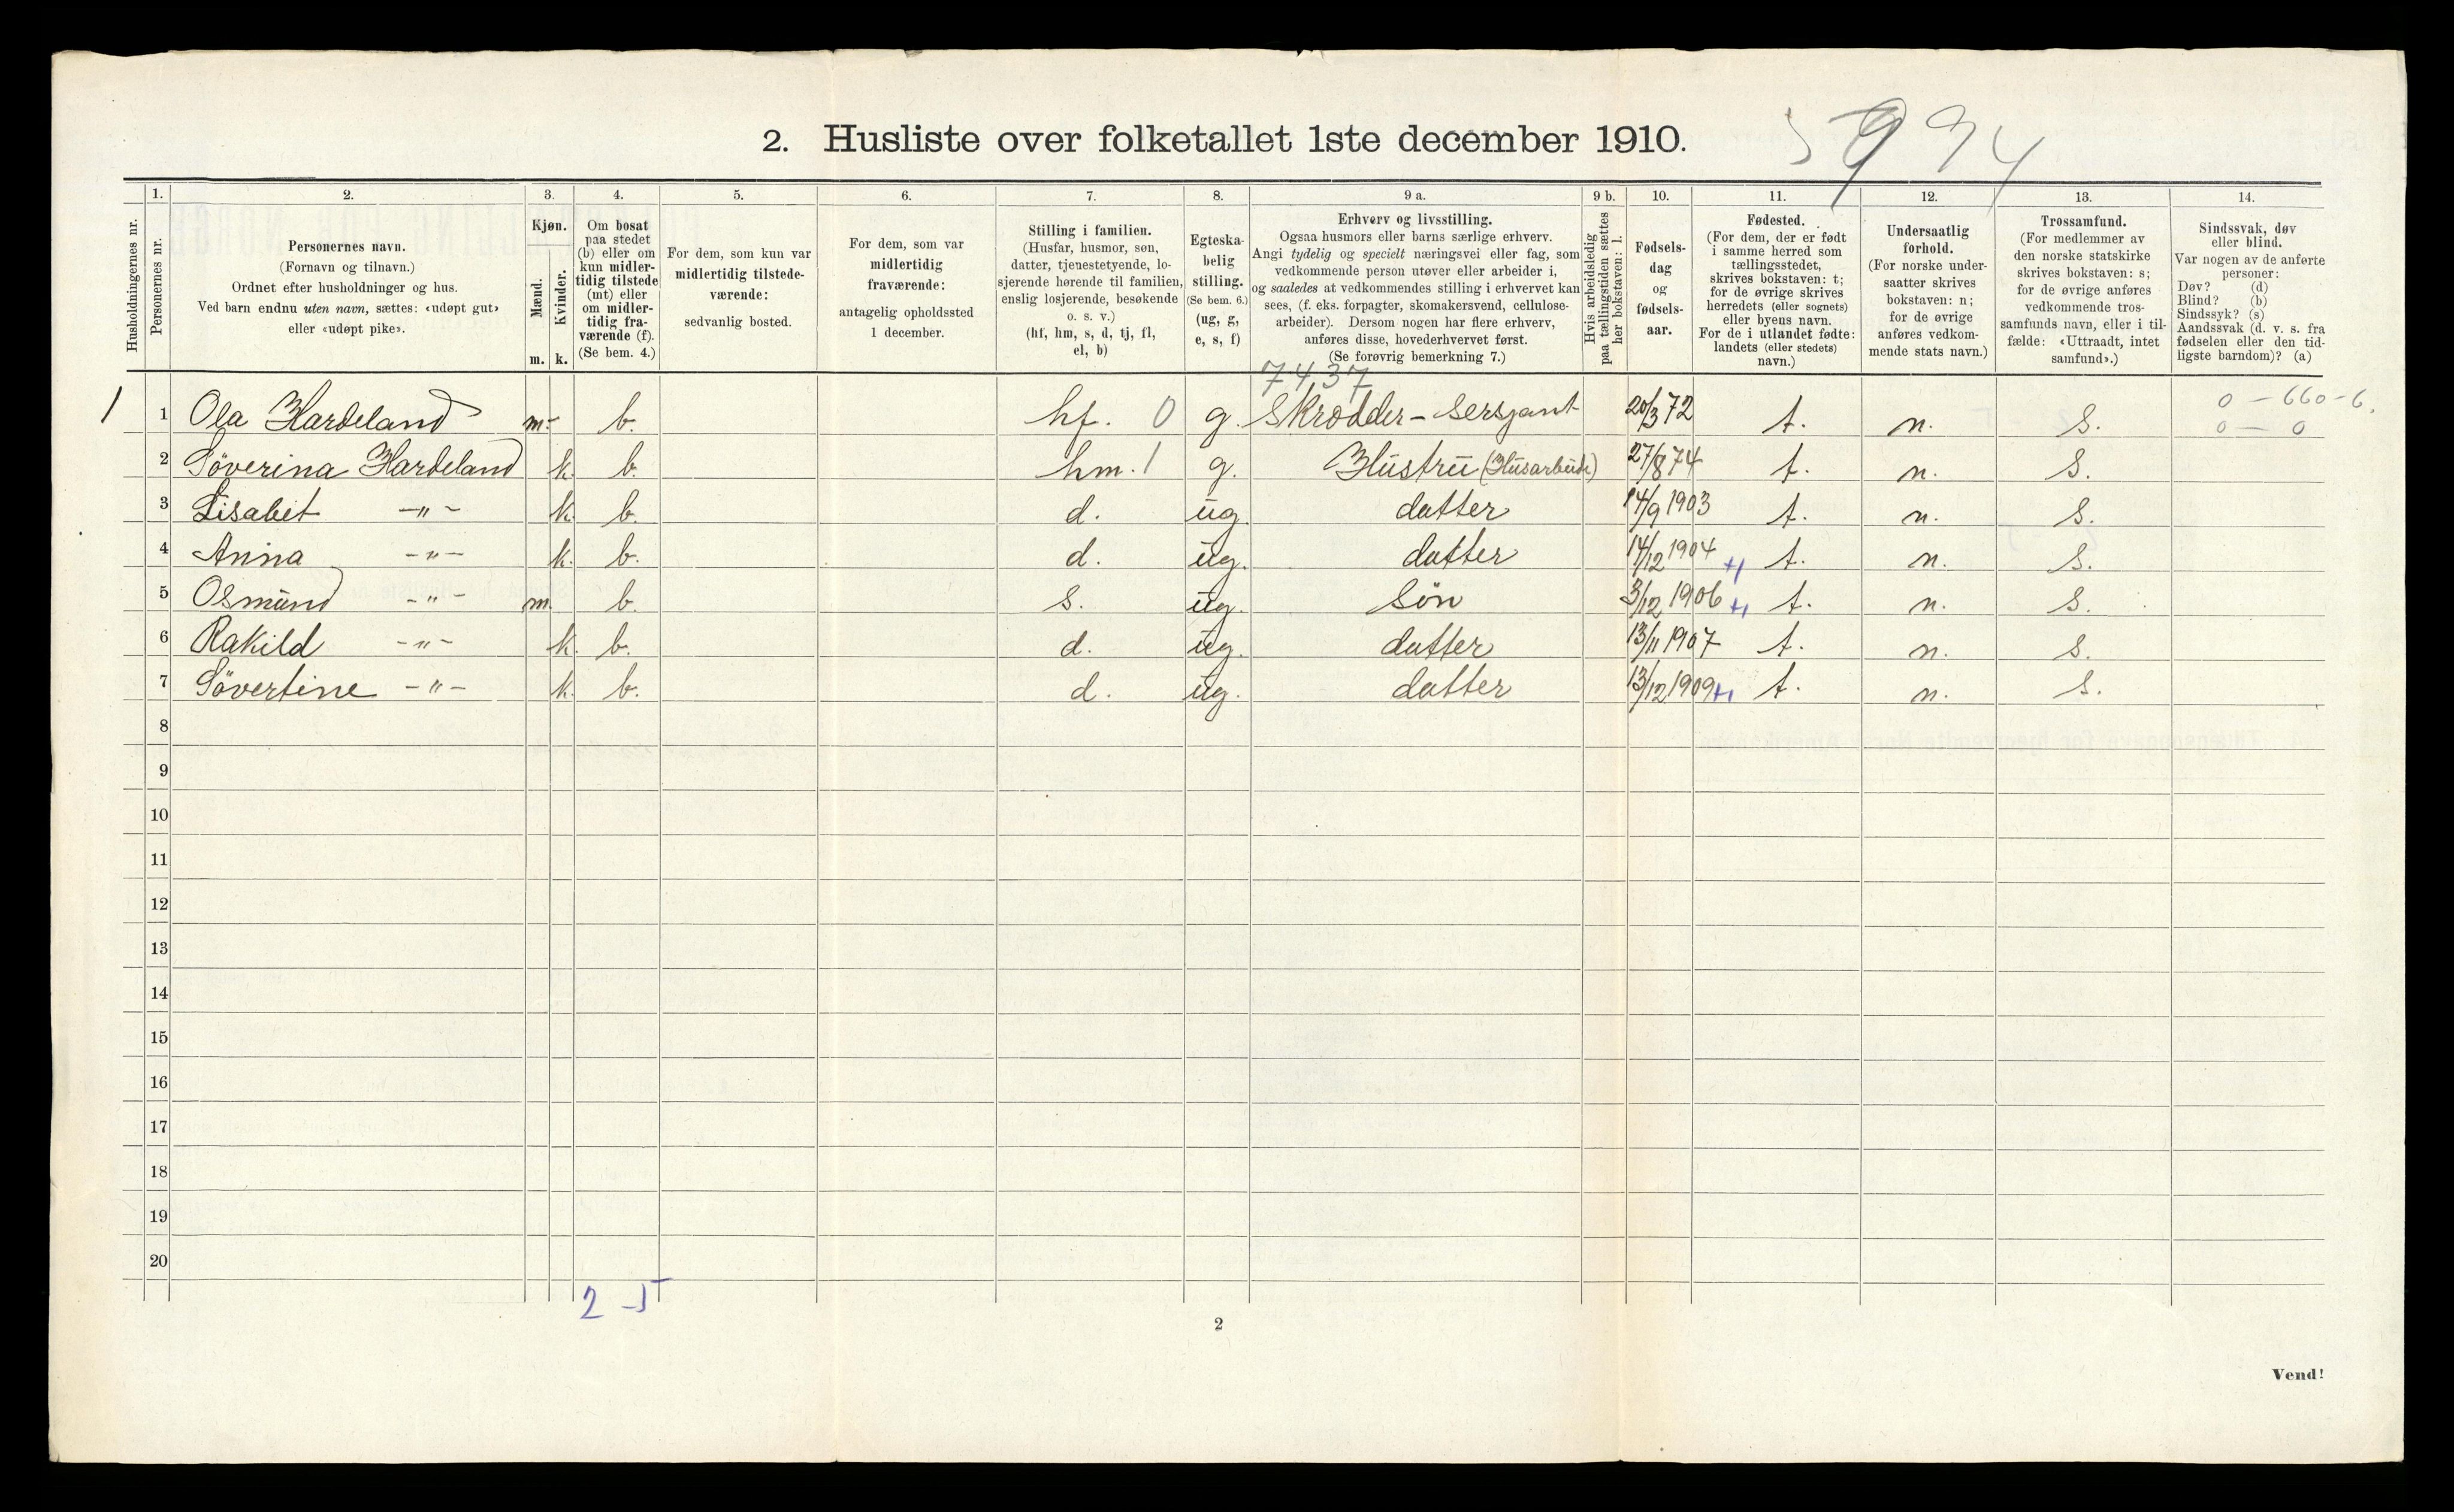 2. Husliste over folketallet 1ste december 1910.
994
Husholdningernes nr.
1.
Personernes nr.
2.
Personernes navn.
(Fornavn og tilnavn.)
Ordnet efter husholdninger og hus.
Ved barn endnu uten navn, sættes: «udøpt gut»
eller «udøpt pike».
3.
Kjøn.
Mænd.
Kvinder.
m. k.
4.
Om bosat
paa stedet
(b) eller om
kun midler-
tidig tilstede
(mt) eller
om midler-
tidig fra-
værende (f).
(Se bem. 4.)
5.
For dem, som kun var
midlertidig tilstede-
værende:
sedvanlig bosted.
6.
For dem, som var
midlertidig
fraværende:
antagelig opholdssted
1 december.
7.
Stilling i familien.
(Husfar, husmor, søn,
datter, tjenestetyende, lo-
sjerende hørende til familien,
enslig losjerende, besøkende
o. s. v.)
(hf, hm, s, d, tj, fl,
el, b)
8.
Egteska-
belig
stilling.
(Se bem. 6.)
(ug, g,
e, s, f)
9 a.
Erhverv og livsstilling.
Ogsaa husmors eller barns særlige erhverv.
Angi tydelig og specielt næringsvei eller fag, som
vedkommende person utøver eller arbeider i,
og saaledes at vedkommendes stilling i erhvervet kan
sees, (f. eks. forpagter, skomakersvend, cellulose-
arbeider). Dersom nogen har flere erhverv,
anføres disse, hovederhvervet først.
(Se forøvrig bemerkning 7.)
9 b.
Hvis arbeidsledig
paa tællingstiden sættes
her bokstaven: l.
10.
Fødsels-
dag
og
fødsels-
aar.
11.
Fødested.
(For dem, der er født
i samme herred som
tællingsstedet,
skrives bokstaven: t;
for de øvrige skrives
herredets (eller sognets)
eller byens navn.
For de i utlandet fødte:
landets (eller stedets)
navn.)
12.
Undersaatlig
forhold.
(For norske under-
saatter skrives
bokstaven: n;
for de øvrige
anføres vedkom-
mende stats navn.)
13.
Trossamfund.
(For medlemmer av
den norske statskirke
skrives bokstaven: s;
for de øvrige anføres
vedkommende tros-
samfunds navn, eller i til-
fælde: «Uttraadt, intet
samfund».)
14.
Sindssvak, døv
eller blind.
Var nogen av de anførte
personer:
Døv? (d)
Blind? (b)
Sindssyk? (s)
Aandssvak (d. v. s. fra
fødselen eller den tid-
ligste barndom)? (a)
7437
0 - 660-6.
1 1 Ola Hardeland m. b. hf. 0 g. Skrodder - Sersjant 20/3 72 t. n. S. 0 - 0
2 Söverina Hardeland k. b. hm. 1 g. Hustru (Husarbeide) 27/8 74 t. n. S.
3 Lisabet -"- k. b. d. ug. datter 14/9 1903 t. n. S.
4 Anna -"- k. b. d. ug. datter 14/12 1904 +1 t. n. S.
5 Osmund -"- m. b. s. ug. Sön 3/12 1906 +1 t. n. S.
6 Rakild -"- k. b. d. ug. datter 13/11 1907 t. n. S.
7 Sövertine -"- k. b. d. ug. datter 13/12 1909 +1 t. n. S.
8
9
10
11
12
13
14
15
16
17
18
19
20
2 - 5
2
Vend!